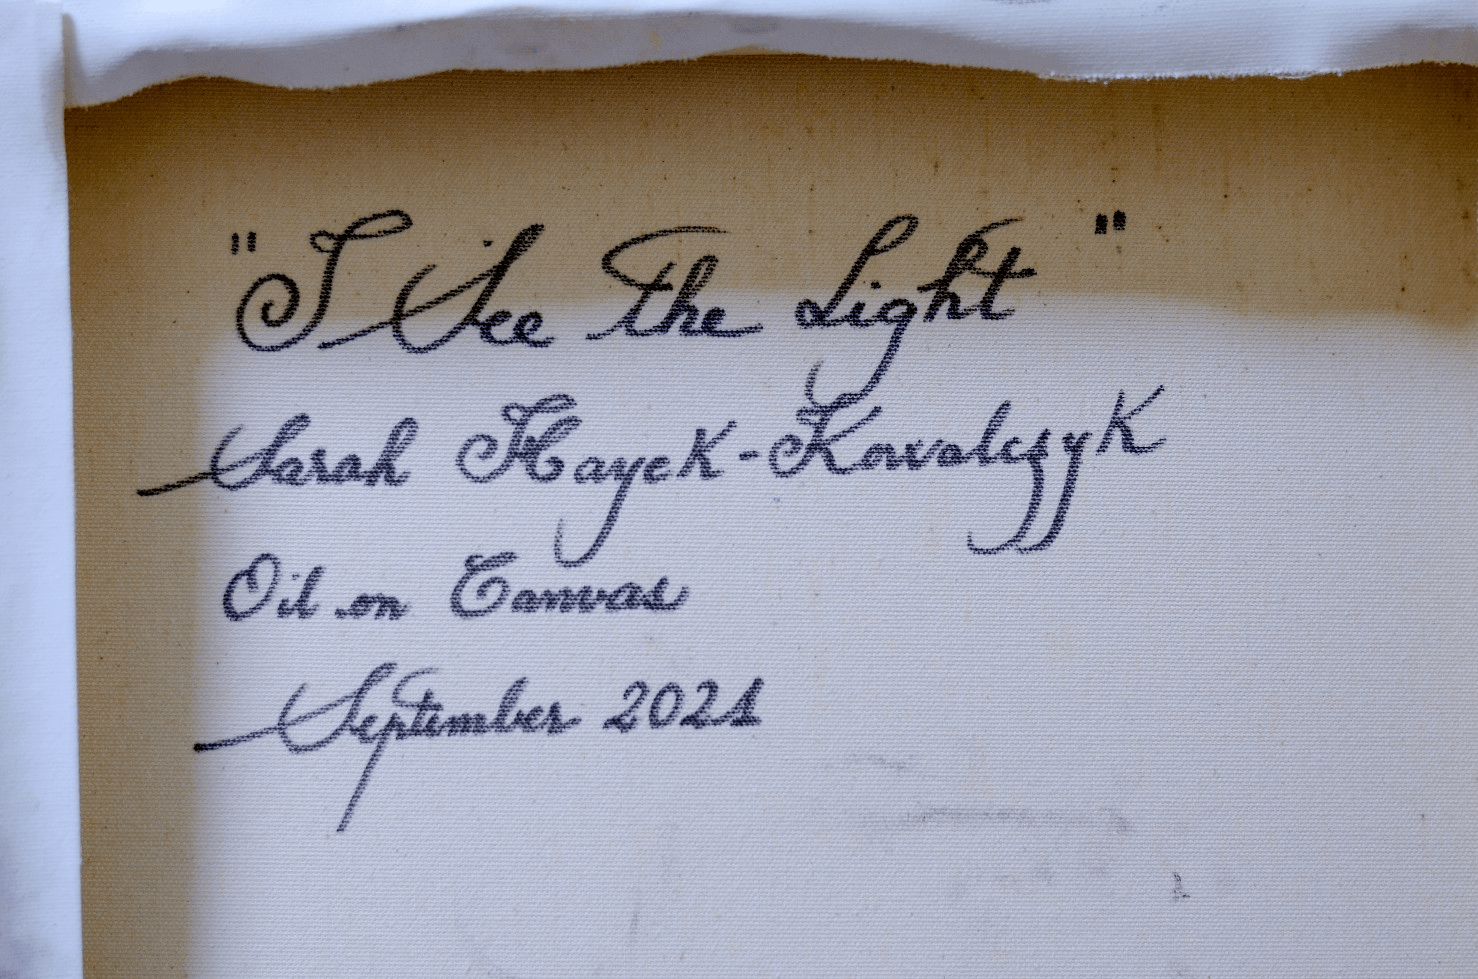 "I See the Light"
Sarah Hayek-Kowalczyk
Oil on Canvas
September 2021